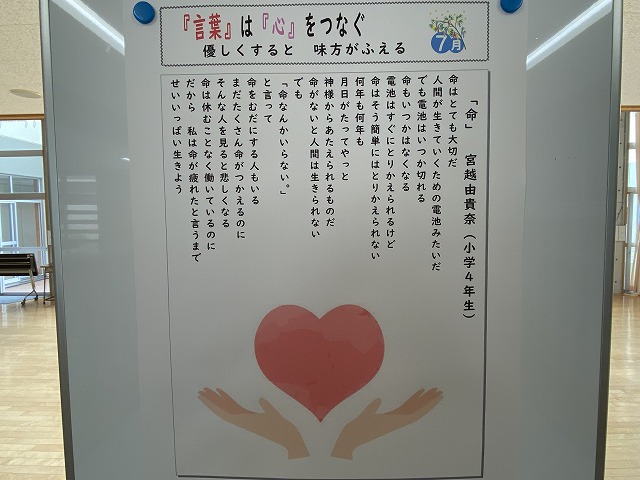 『言葉』は『心』をつなぐ
優しくすると 味方がふえる
7月
「命」 宮越由貴奈（小学４年生）
命はとても大切だ
人間が生きていくための電池みたいだ
でも電池はいつか切れる
命もいつかはなくなる
電池はすぐにとりかえられるけど
命はそう簡単にはとりかえられない
何年も何年も
月日がたってやっと
神様からあたえられるものだ
命がないと人間は生きられない
でも
「命なんかいらない。」
と言って
命をむだにする人もいる
まだたくさん命がつかえるのに
そんな人を見ると悲しくなる
命は休むことなく働いているのに
だから 私は命が疲れたと言うまで
せいいっぱい生きよう